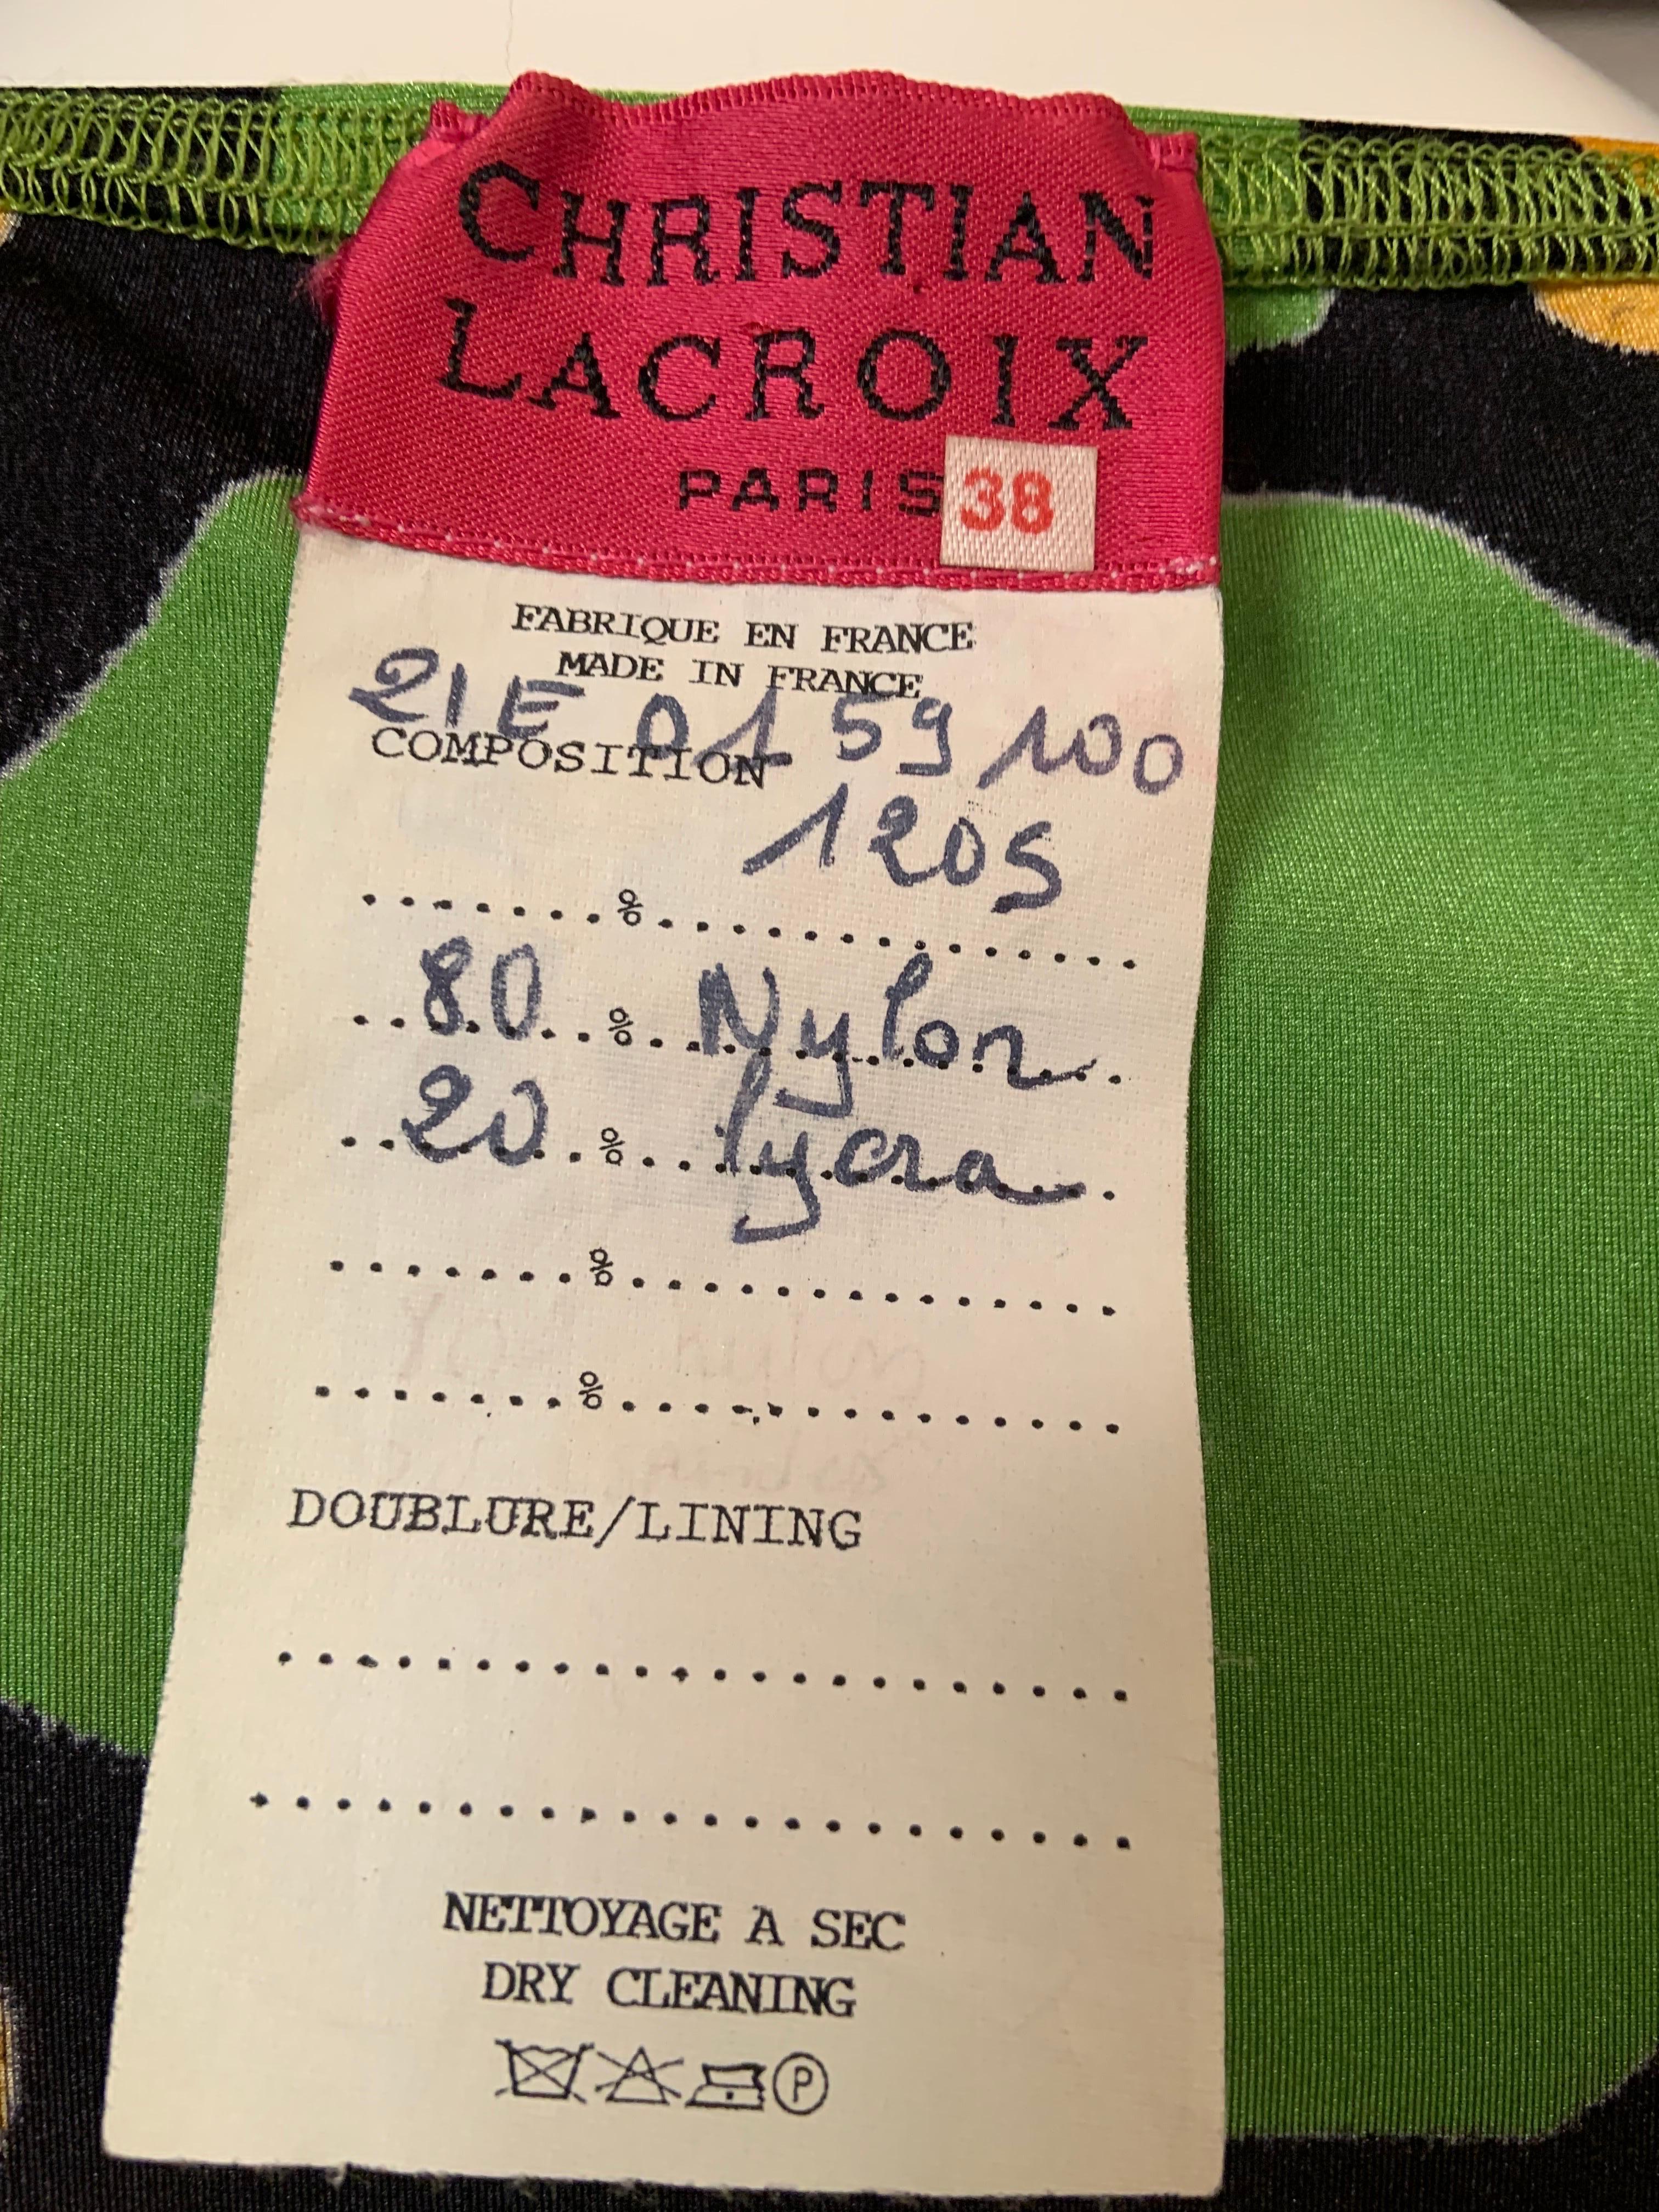 CHRISTIAN
LACROIX
PARIS 38
FABRIQUE EN FRANCE
MADE IN FRANCE
21E 01 59 100
COMPOSITION
1205
.......%..............
..80..%..Nylon..
..20..%..lycra..
.......%..............
.......%..............
DOUBLURE/LINING
......................
......................
NETTOYAGE A SEC
DRY CLEANING
P